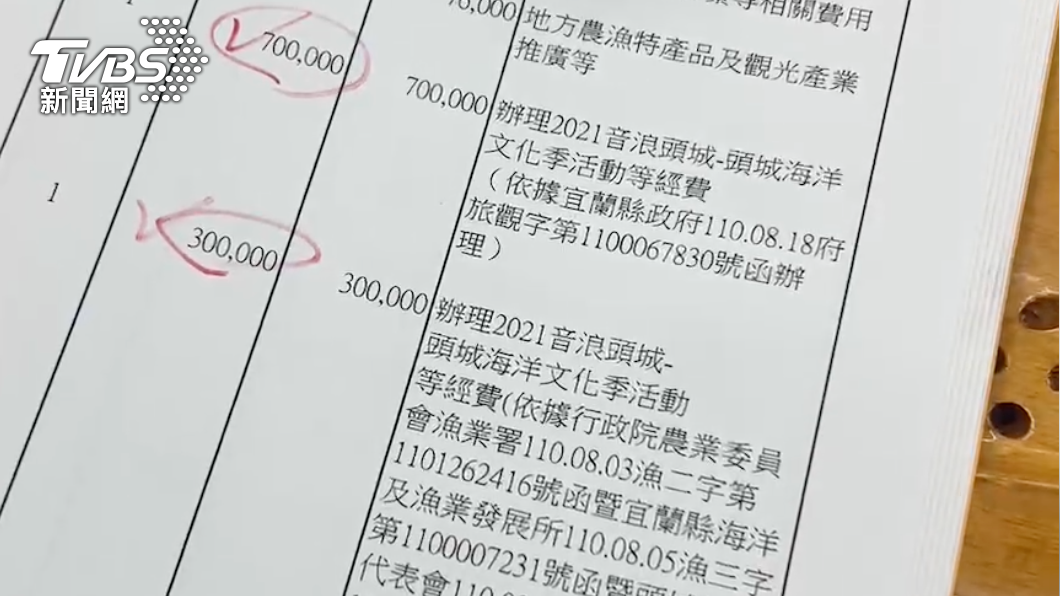 TVBS
新聞網
相關費用
地方農漁特產品及觀光產業
推廣等
700,000
700,000
辦理2021音浪頭城-頭城海洋
文化季活動等經費
（依據宜蘭縣政府110.08.18府
旅觀字第1100067830號函辦
理）
1
300,000
300,000
辦理2021音浪頭城-
頭城海洋文化季活動
等經費(依據行政院農業委員
會漁業署110.08.03漁二字第
1101262416號函暨宜蘭縣海洋
及漁業發展所110.08.05漁三字
第1100007231號函暨頭城
代表會110.0